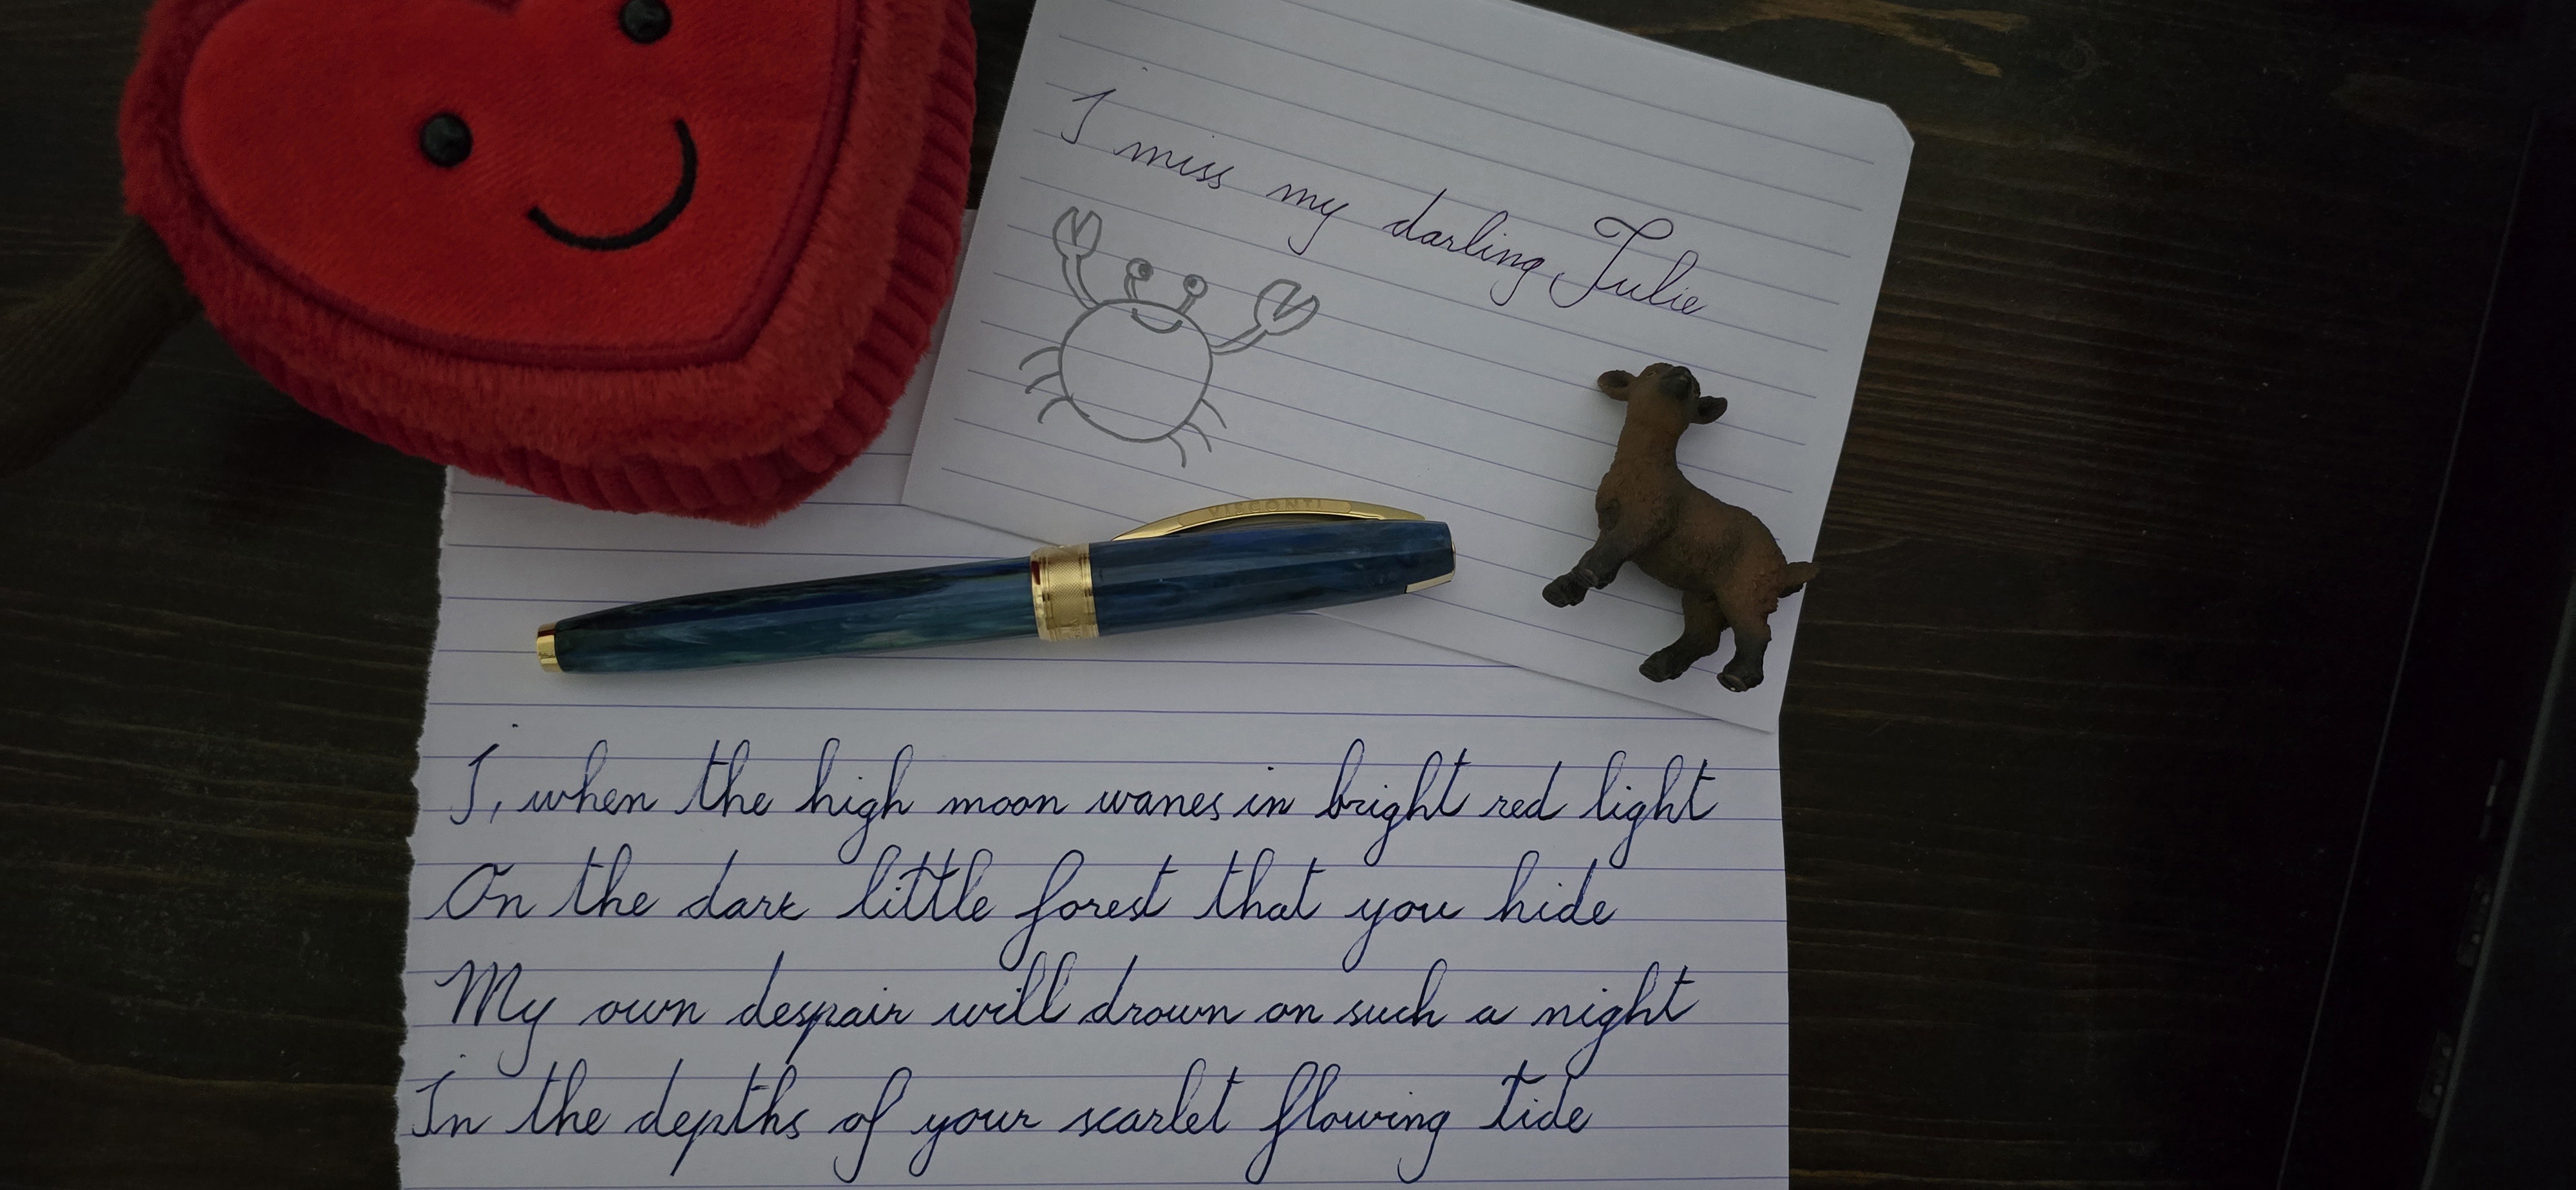 I miss my darling Julie
VISCONTI
I, when the high moon wanes in bright red light
On the dark little forest that you hide
My own despair will drown on such a night
In the depths of your scarlet flowing tide